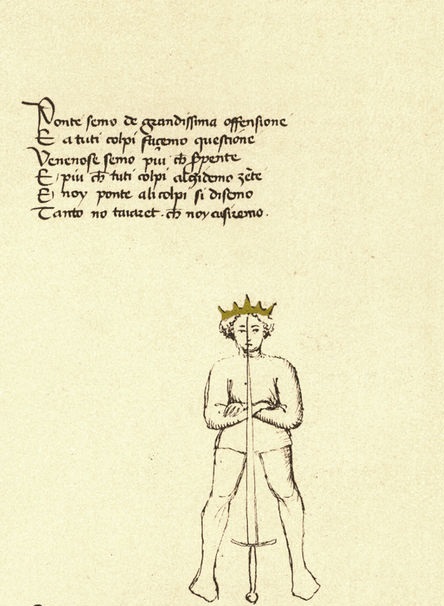 Ponte semo de grandissima offensione
E a tuti colpi façemo questione
Venenose semo piu ch̃ s̃pente
E piu ch̃ tuti colpi alçidemo zẽte
E noy ponte ali colpi si diseno
Tanto no tayaret ch̃ noy cusiremo.